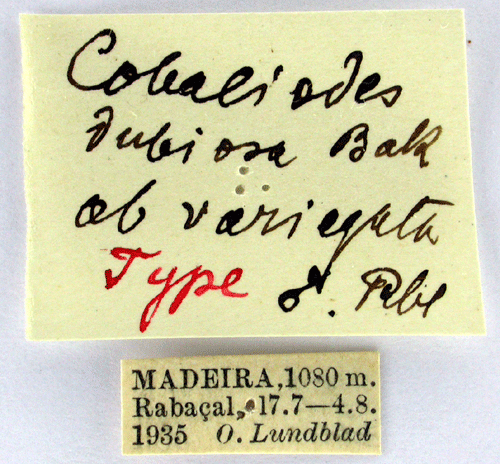 Cobaliodes
dubiosa Bak
ab variegata
Type ♂. Rbl
MADEIRA, 1080 m.
Rabaçal, 17.7—4.8.
1935 O. Lundblad